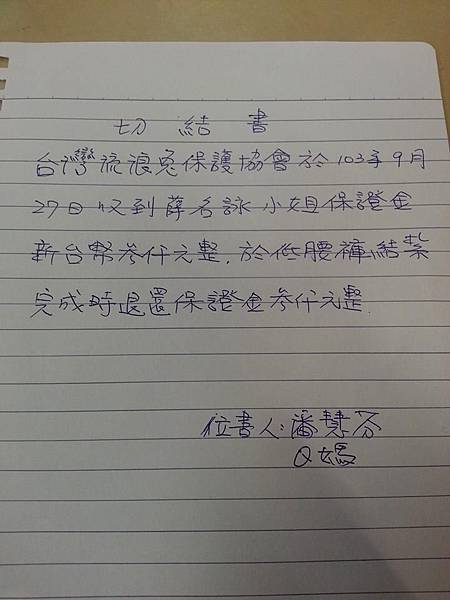 切結書
台灣流浪兔保護協會於103年9月
27日收到薛名詠小姐保證金
新台幣参仟元整，於低腰褲結紮
完成時退還保證金参仟元整.
位書人:潘慧芬
Q媽